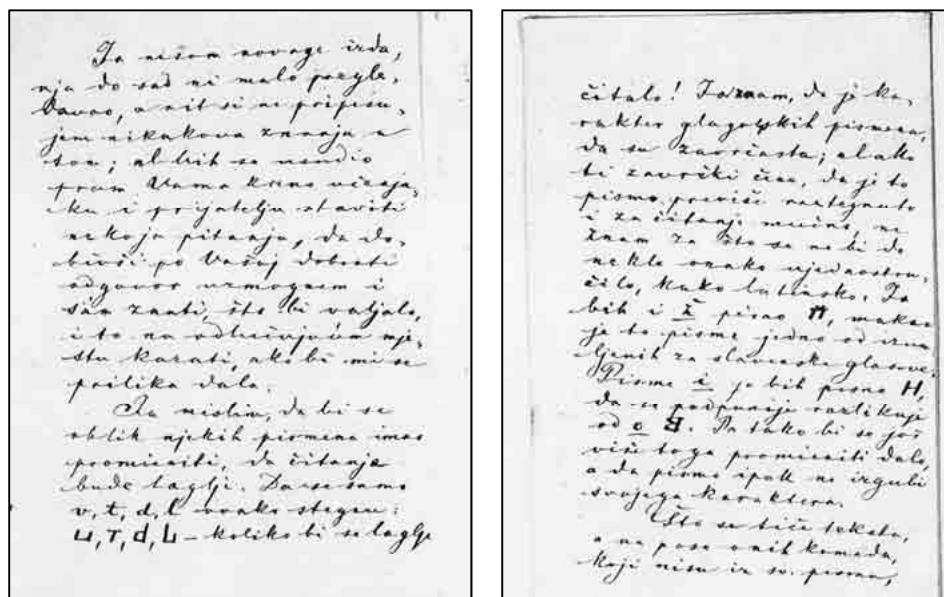 Ja nisam novoga izda,
nja do sad ni malo pregle,
davao, a nit si ne pripisu,
jem nikakova znanja u
tom; al bih se usudio
pram Vama kano vještja,
ku i prijatelju staviti
nekoja pitanja, da do,
bivši po Vašoj dobroti
odgovor uzmognem i
sam znati, što bi valjalo,
i to na odlučujućem mje,
stu kazati, ako bi mi se
prilika dala.
Ja mislim, da bi se
oblik njekih pismena imao
promieniti, da čitanje
bude laglje. Da se samo
v, t, d, l ovako stegnu:
– koliko bi se laglje
čitalo! Ja znam, da je ka,
rakter glagolskih pismena,
da su zavrčasta; al ako
ti zavrčki čine, da je to
pismo previše raztegnuto
i za čitanje mučno, ne
znam za što se ne bi do
nekle onako ujednostru,
čilo, kako latinsko. Ja
bih i ž pisao, makar
je to pisme jedno od izum
ljenih za slavenske glasove.
Pisme i ja bih pisao
da se podpunije razlikuje
od o. Pa tako bi se još
više toga promieniti dalo,
a da pismo ipak ne izgubi
svojega karaktera.
Što se tiče teksta,
a na pose onih komada,
koji nisu iz sv. pisma,